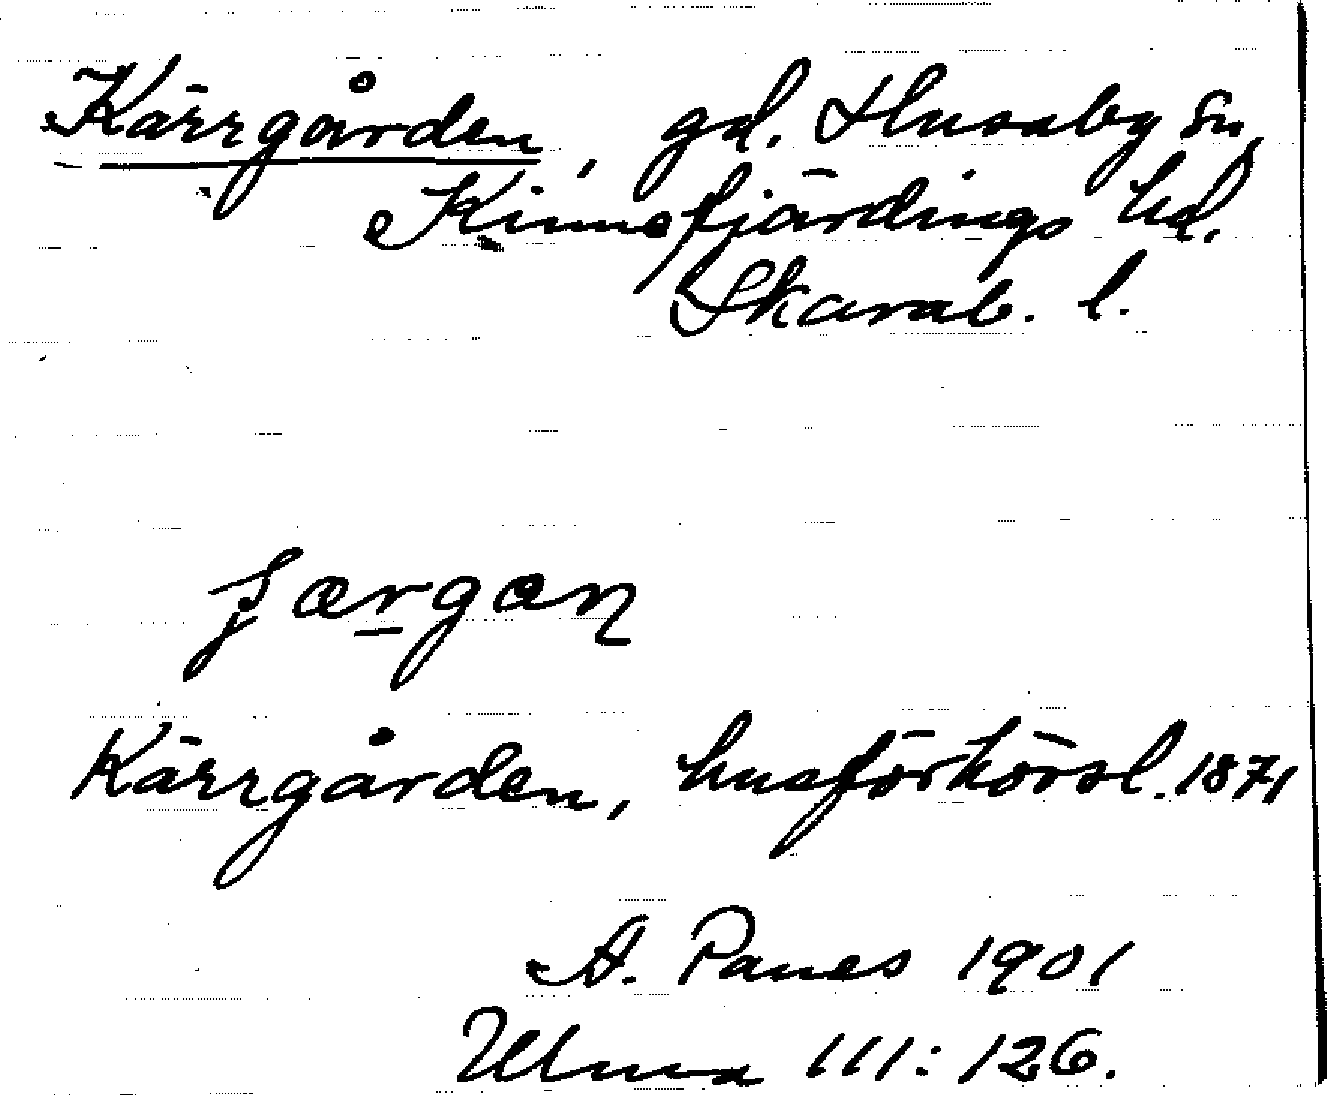 Kärrgården, gd. Husaby sn,
Kinnefjärdings hd.
Skarab. l.
Kärrgården, husförhörsl. 1871
A. Panes 1901
Ulma 111:126.